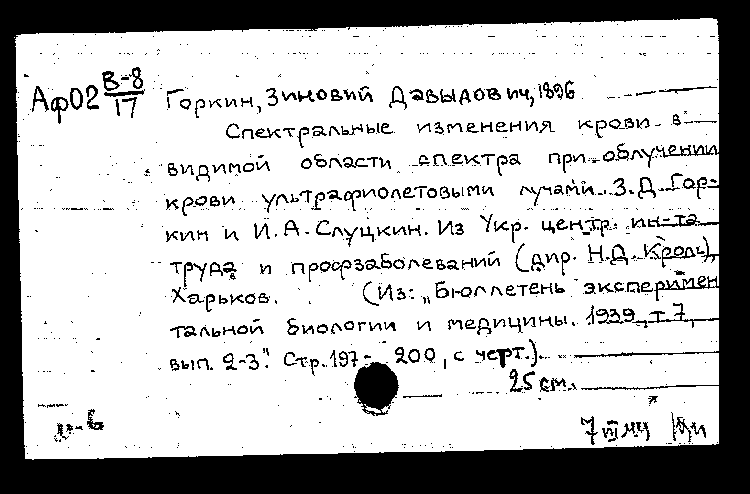 Аф02 В-8/17 Горкин, Зиновий Давыдович, 1896
Спектральные изменения крови в
видимой области спектра при облучении
крови ультрафиолетовыми лучами. З.Д. Гор-
кин и И.А. Слуцкин. Из Укр. центр. ин-та
труда и профзаболеваний (дир. Н.Д. Кроль),
Харьков. (Из: „Бюллетень эксперимен
тальной биологии и медицины. 1939, т. 7,
вып. 2-3". Стр. 197-200, с черт.).
25 см.